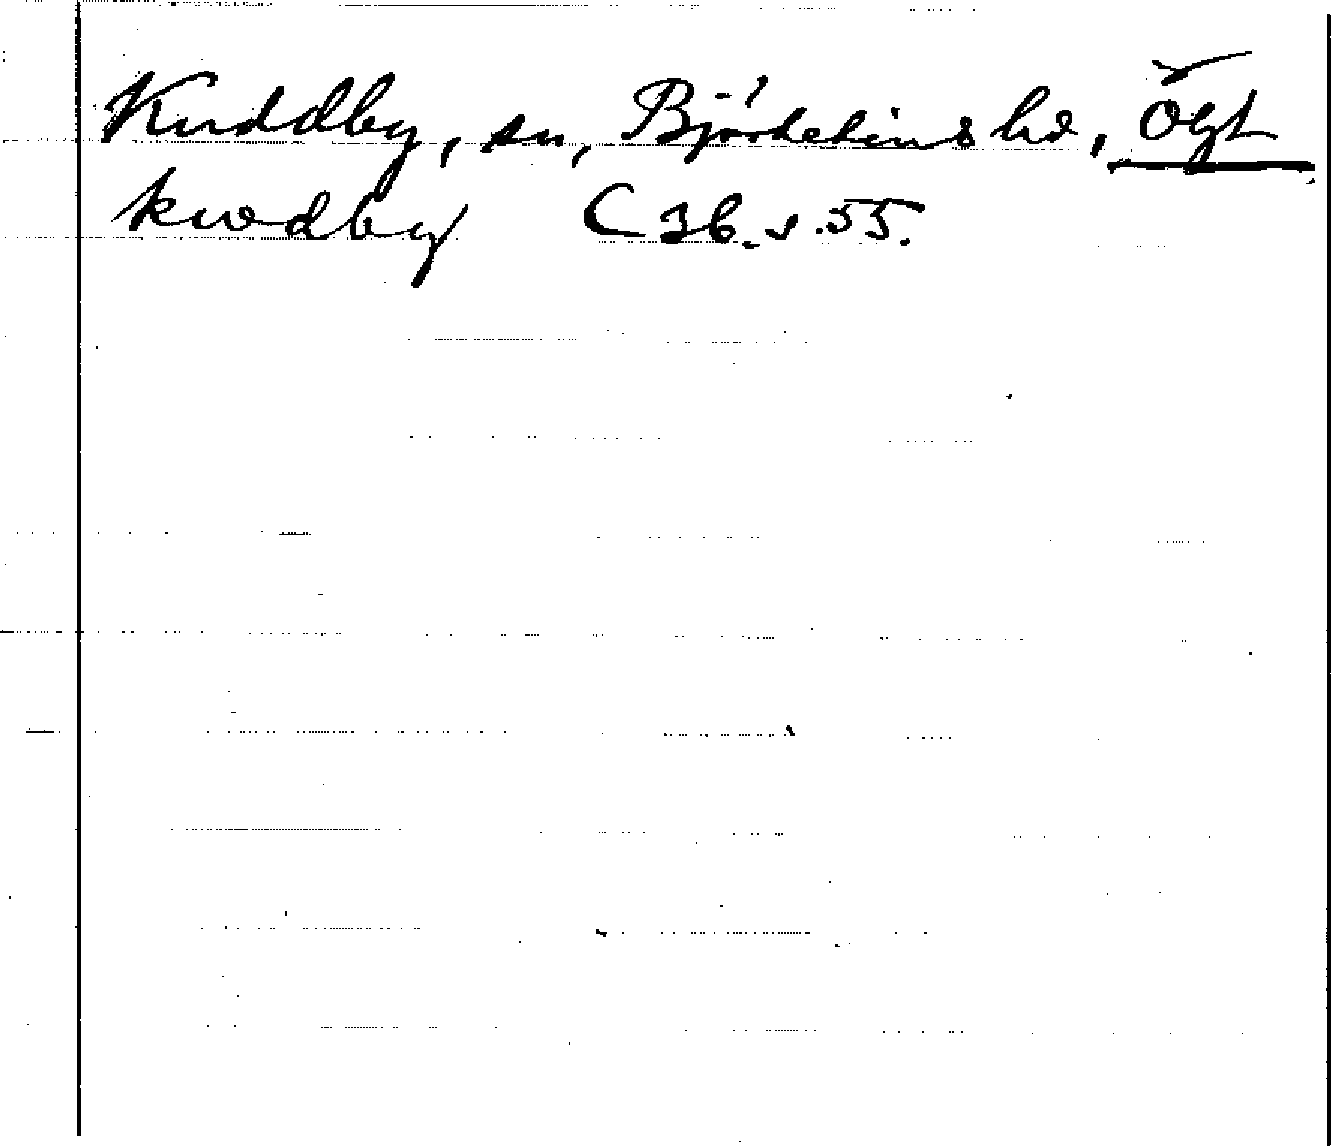 Kuddby, sn, Björkekinds hd, Ögt
kwdby C 36. s. 55.